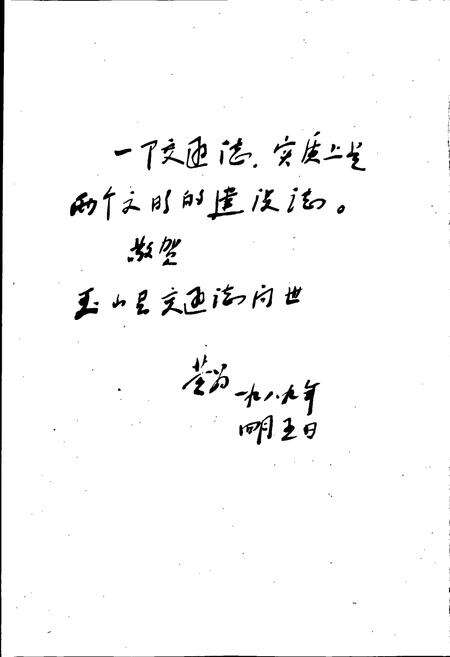 一个交通志,实质上是
两个文明的建设志。
敬贺
玉山县交通志问世
一九八九年
四月五日